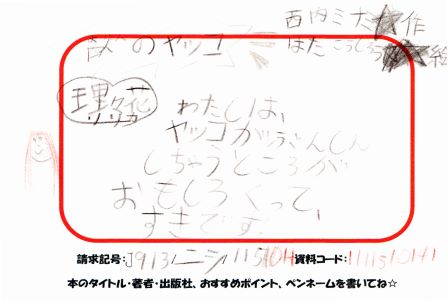 西内ミナ 作
のヤッコ
はたこうしろう 絵
理花
リリカ
わたしは、
ヤッコがへんしん
しちゃうところが
おもしろくって、
すきです。
請求記号:J913ニシ 資料コード:
本のタイトル・著者・出版社、おすすめポイント、ペンネームを書いてね☆